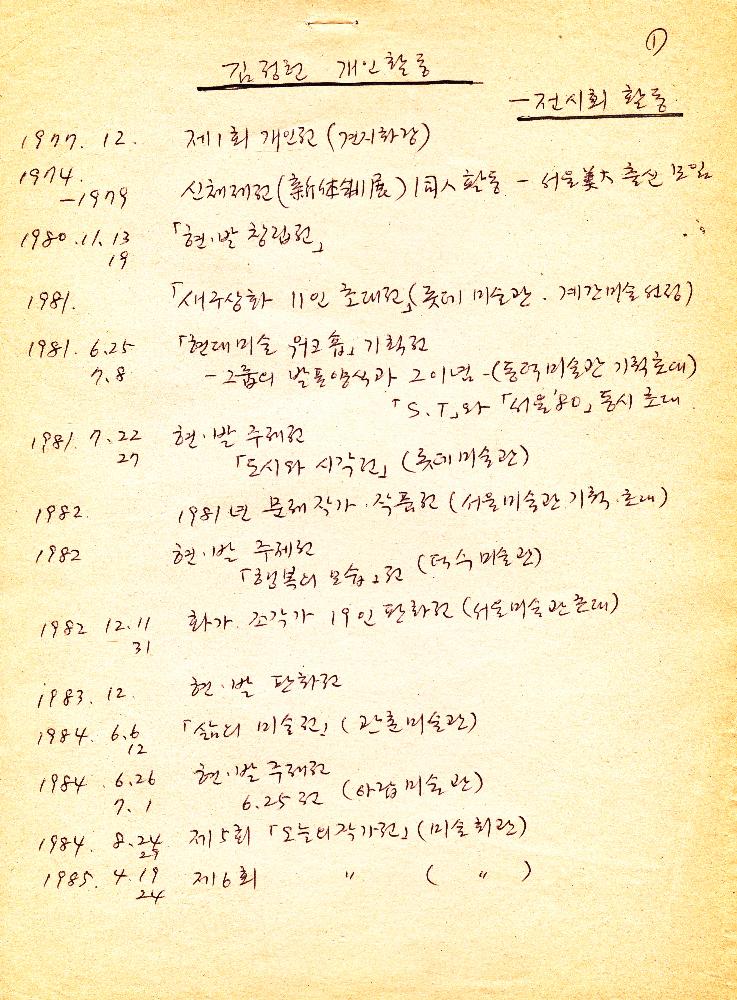 ①
김정헌 개인활동
- 전시회 활동
1977. 12. 제1회 개인전 (견지화랑)
1974.
-1979 신체제전 (新体制展) 同人 활동 - 서울美大 출신 모임
1980. 11. 13 「현·발 창립전」
19
1981. 「새구상화 11인 초대전」(롯데 미술관. 계간미술선정)
1981. 6.25 「현대미술 워크숍」 기획전
7.8 - 그룹의 발표양식과 그 이념 - (동덕미술관 기획초대)
「S.T」와 「서울'80」 동시 초대
1981. 7.22 현·발 주제전
27 「도시와 시각전」 (롯데미술관)
1982. 1981년 문제작가·작품전 (서울미술관 기획·초대)
1982 현·발 주제전
「행복의 모습」전 (덕수미술관)
1982 12.11 화가 조각가 19인 판화전 (서울미술관초대)
31
1983. 12. 현·발 판화전
1984. 6.6 「삶의 미술전」 (관훈미술관)
12
1984. 6.26 현·발 주제전
7. 1 6.25전 (아랍미술관)
1984. 8.24 제5회 「오늘의작가전」 (미술회관)
29
1985. 4.19 제6회 〃 ( 〃 )
24